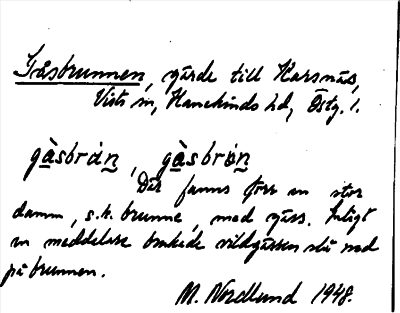 Gåsbrunnen, gärde till Karsnäs,
Vists sn, Hanekinds hd, Östg. l.
gàsbrán, gàsbrøn
Där fanns förr en stor
damm, s.k. brunne, med gäss. Enligt
en meddelare brukade vildgässen slå ned
på brunnen.
M. Nordlund 1948.